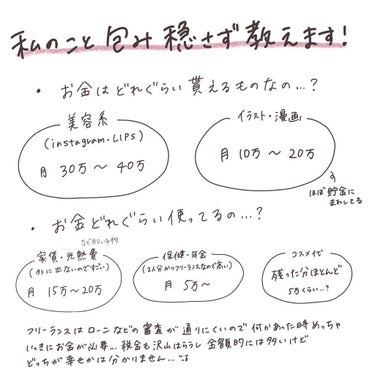 私のこと包み隠さず教えます!
・お金はどれぐらい貰えるものなの…?
美容系
(instagram・LIPS)
月 30万〜40万
イラスト・漫画
月 10万〜20万
ほぼ貯金に
まわしてる
・お金どれぐらい使ってるの…?
家賃・光熱費
(外に出ないのですごい)
月 15万〜20万
保険・年金
(2人分かつフリーランスなので高い)
月 5万〜
コスメ代
残った分ほとんど
5万くらい…?
フリーランスはローンなどの審査が通りにくいので何かあった時めっちゃ
いっきにお金が必要…税金も沢山はらうし金額的には多いけど
どっちが幸せかは分かりません…